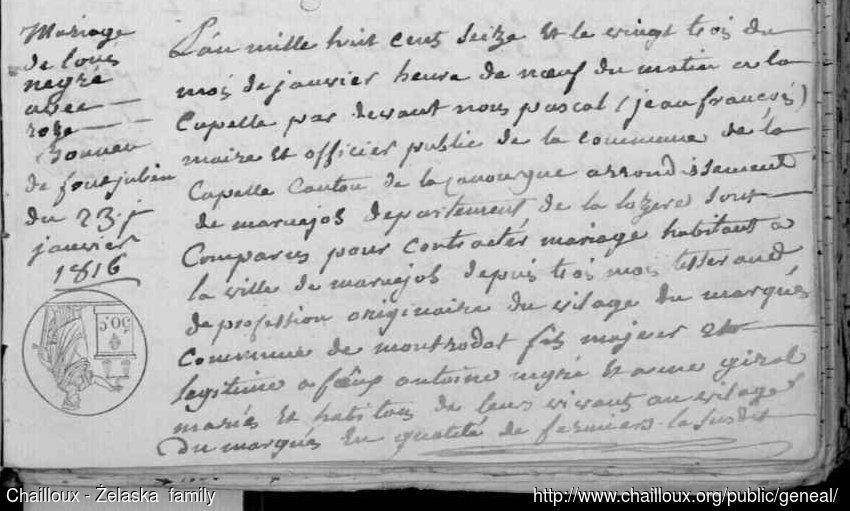 Mariage
de louis
negré
avec
roze
Bonneu
de fontjulien
du 23.
janvier
1816
L'an mille huit cens seize et le vingt trois du
mois de janvier heure de neuf du matin a la
Capelle par devant nous pascal (jean françois)
maire et officier public de la commune de la
Capelle Canton de la Canourgue arrondissement
de maruejols departement de la lozere sont
Comparus pour contracter mariage habitant a
la ville de maruejols depuis trois mois tisserand
de profession originaire du vilage du marqués
commune de montrodat fils majeur et
legitime a feux antoine negré et anne giral
mariés et habitans de leurs vivants au vilage
du marqués en qualité de fermiers la susdit
50.C
Chailloux - Żelaska family
http://www.chailloux.org/public/geneal/